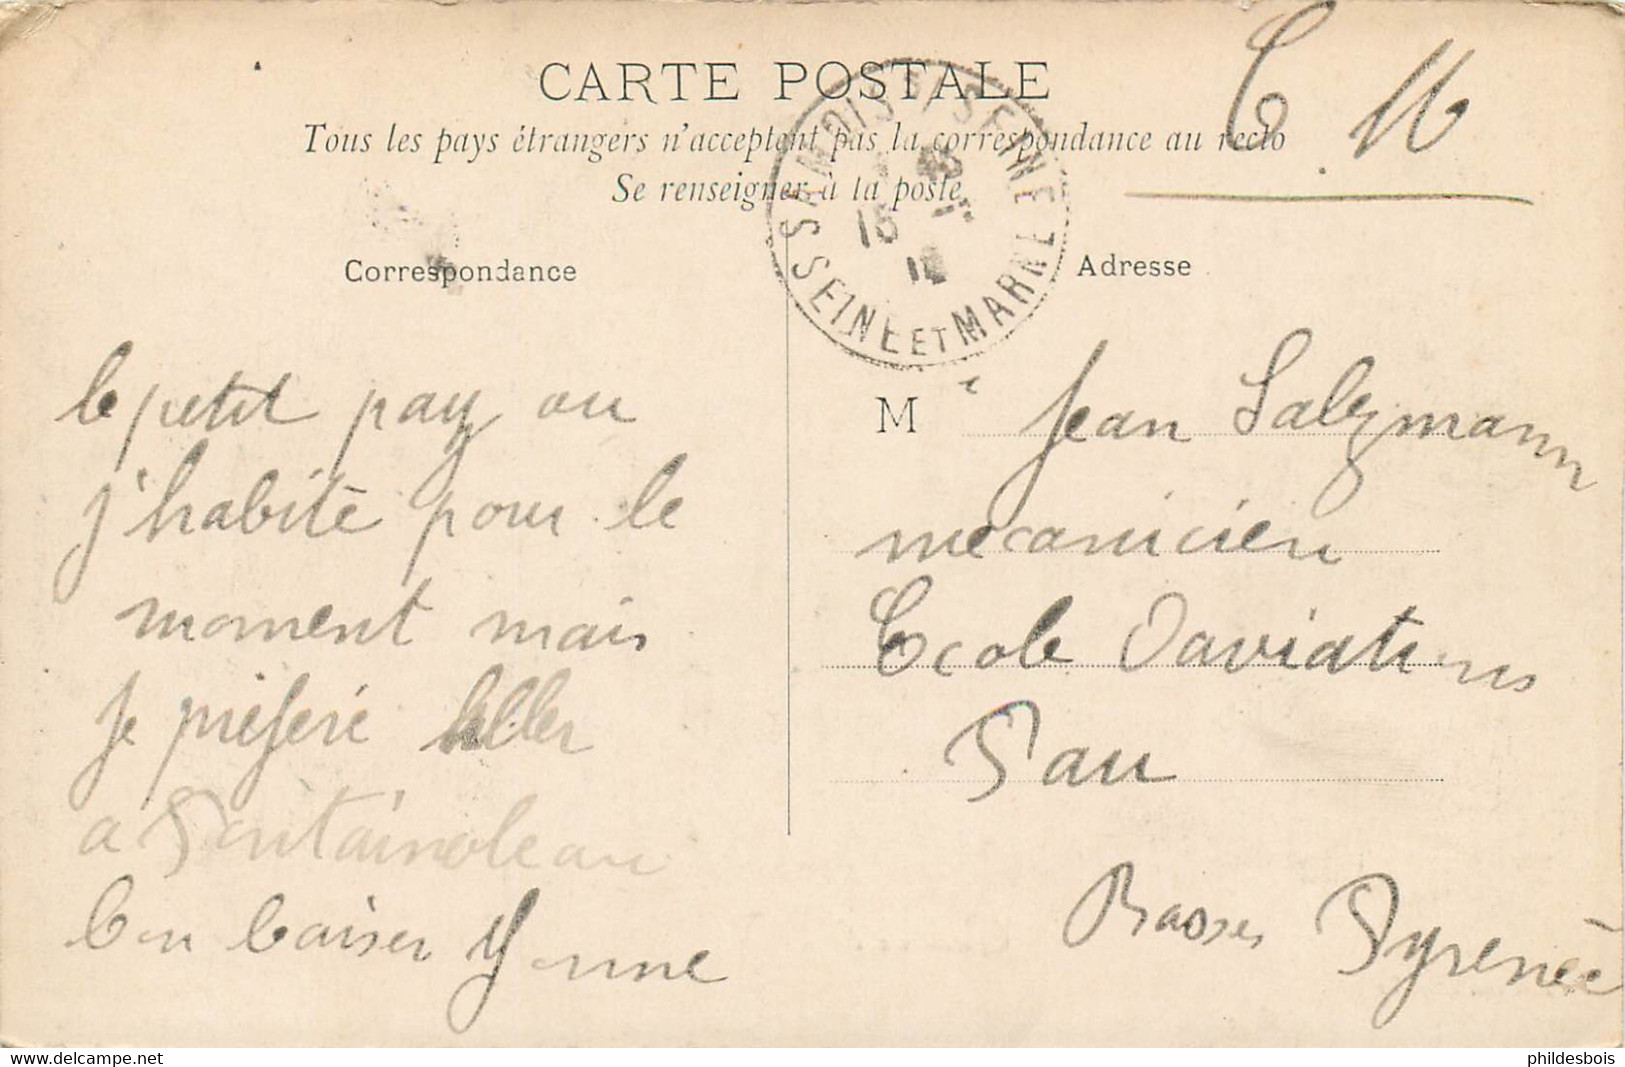 CARTE POSTALE
Tous les pays étrangers n'acceptent pas la correspondance au recto
Se renseigner à la poste
SAMOIS S/SEINE
15
SEINE ET MARNE
Correspondance
Adresse
le petit pay ou
j'habite pour le
moment mais
je préferé aller
a Fontainebleau
bon baiser Yvonne
M Jean Salzmann
mecanicien
Ecole Daviations
Pau
Basses Pyrenée
Delcampe.net
phildesbois